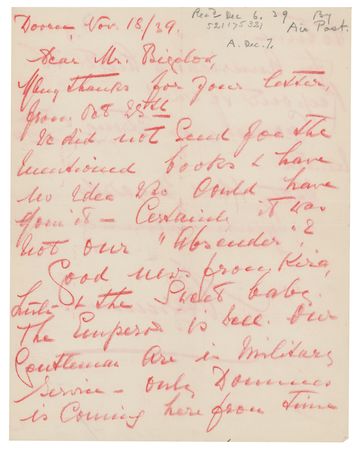 Doorn, Nov. 18/39.
Rec'd Dec 6. 39 By
521175321 Air Post.
A. Dec. 7.
Dear Mr. Bigelow,
Many thanks for your letter,
from Oct 25th
We did not send for the
mentioned books & have
no idea who could have
done it – Certainly it was
not our "Absender",
Good news from Kira,
Lulu & the sweet baby.
The Emperor is well. Our
Gentlemen are in Military
Service – only Dommes
is coming here from time